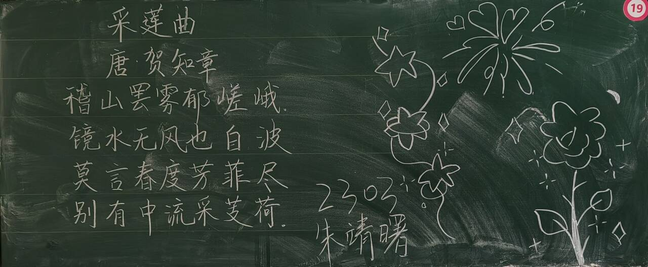 采莲曲
唐·贺知章
稽山罢雾郁嵯峨.
镜水无风也自波
莫言春度芳菲尽
别有中流采芰荷.
2303
朱晴曙
19